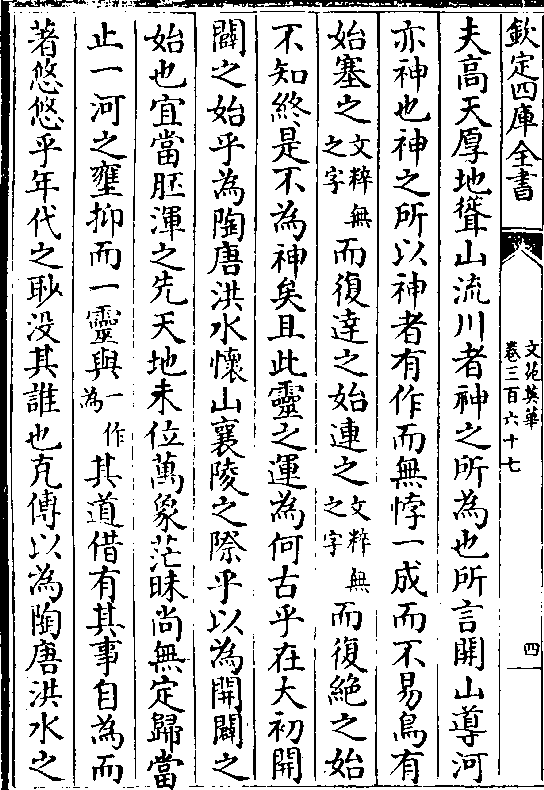 欽定四庫全書
文苑英華
卷三百六十七
四
夫高天厚地聳山流川者神之所為也所言開山導河
亦神也神之所以神者有作而無悖一成而不易鳥有
始塞之文粹無之字而復達之始連之文粹無之字而復絶之始
不知終是不為神矣且此靈之運為何古乎在大初開
闢之始乎為陶唐洪水懷山襄陵之際乎以為開闢之
始也宜當胚渾之先天地未位萬象茫昧尚無定歸當
止一河之壅抑而一靈與一作為其道借有其事自為而
著悠悠乎年代之眇没其誰也克傳以為陶唐洪水之